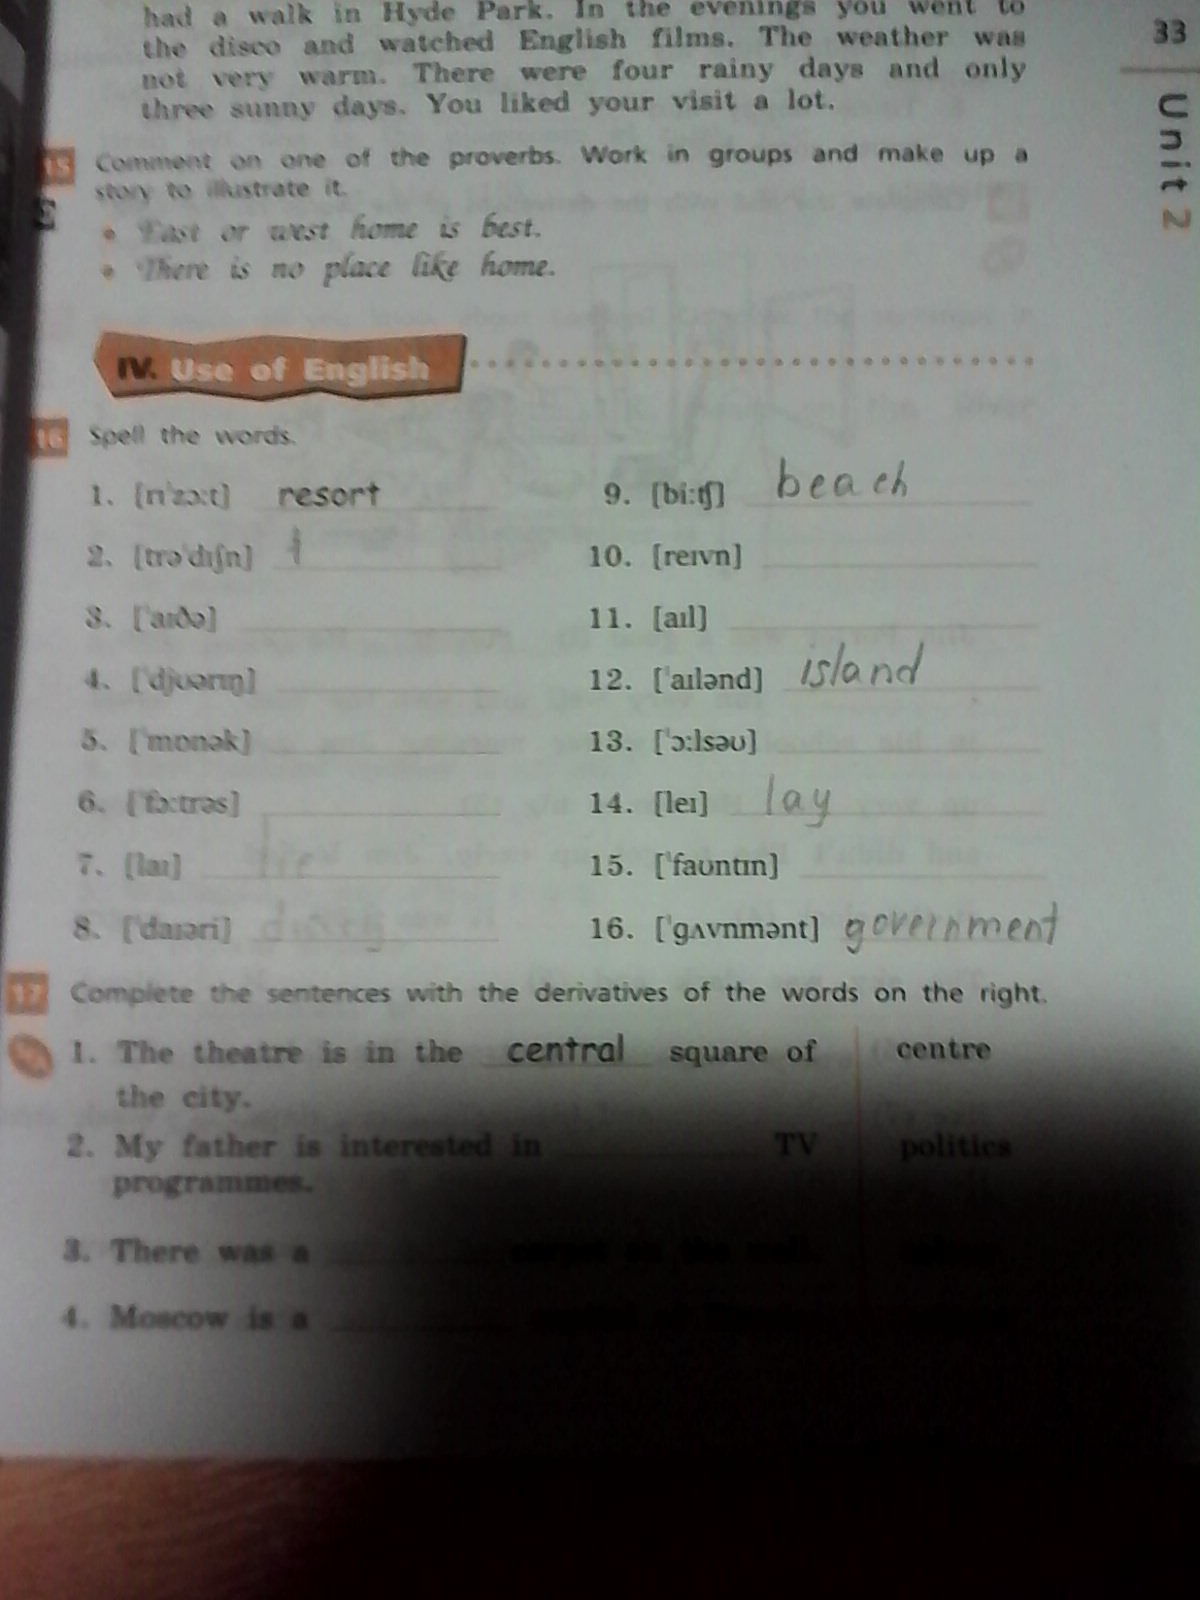 had a walk in Hyde Park. In the evenings you went to
the disco and watched English films. The weather was
not very warm. There were four rainy days and only
three sunny days. You liked your visit a lot.
33
Unit 2
15 Comment on one of the proverbs. Work in groups and make up a
story to illustrate it.
• East or west home is best.
• There is no place like home.
IV. Use of English
16 Spell the words.
1. [rɪˈzɔːt] resort
2. [trəˈdɪʃn] t
3. [ˈaɪðə]
4. [ˈdjʊərɪŋ]
5. [ˈmɒnək]
6. [ˈfɔːtrəs]
7. [laɪ] lie
8. [ˈdaɪəri]
9. [biːʧ] beach
10. [reɪvn]
11. [aɪl]
12. [ˈaɪlənd] island
13. [ˈɔːlsəʊ]
14. [leɪ] lay
15. [ˈfaʊntɪn]
16. [ˈgʌvnmənt] government
17 Complete the sentences with the derivatives of the words on the right.
1. The theatre is in the central square of centre
the city.
2. My father is interested in TV politics
programmes.
3. There was a carpet on the wall.
4. Moscow is a